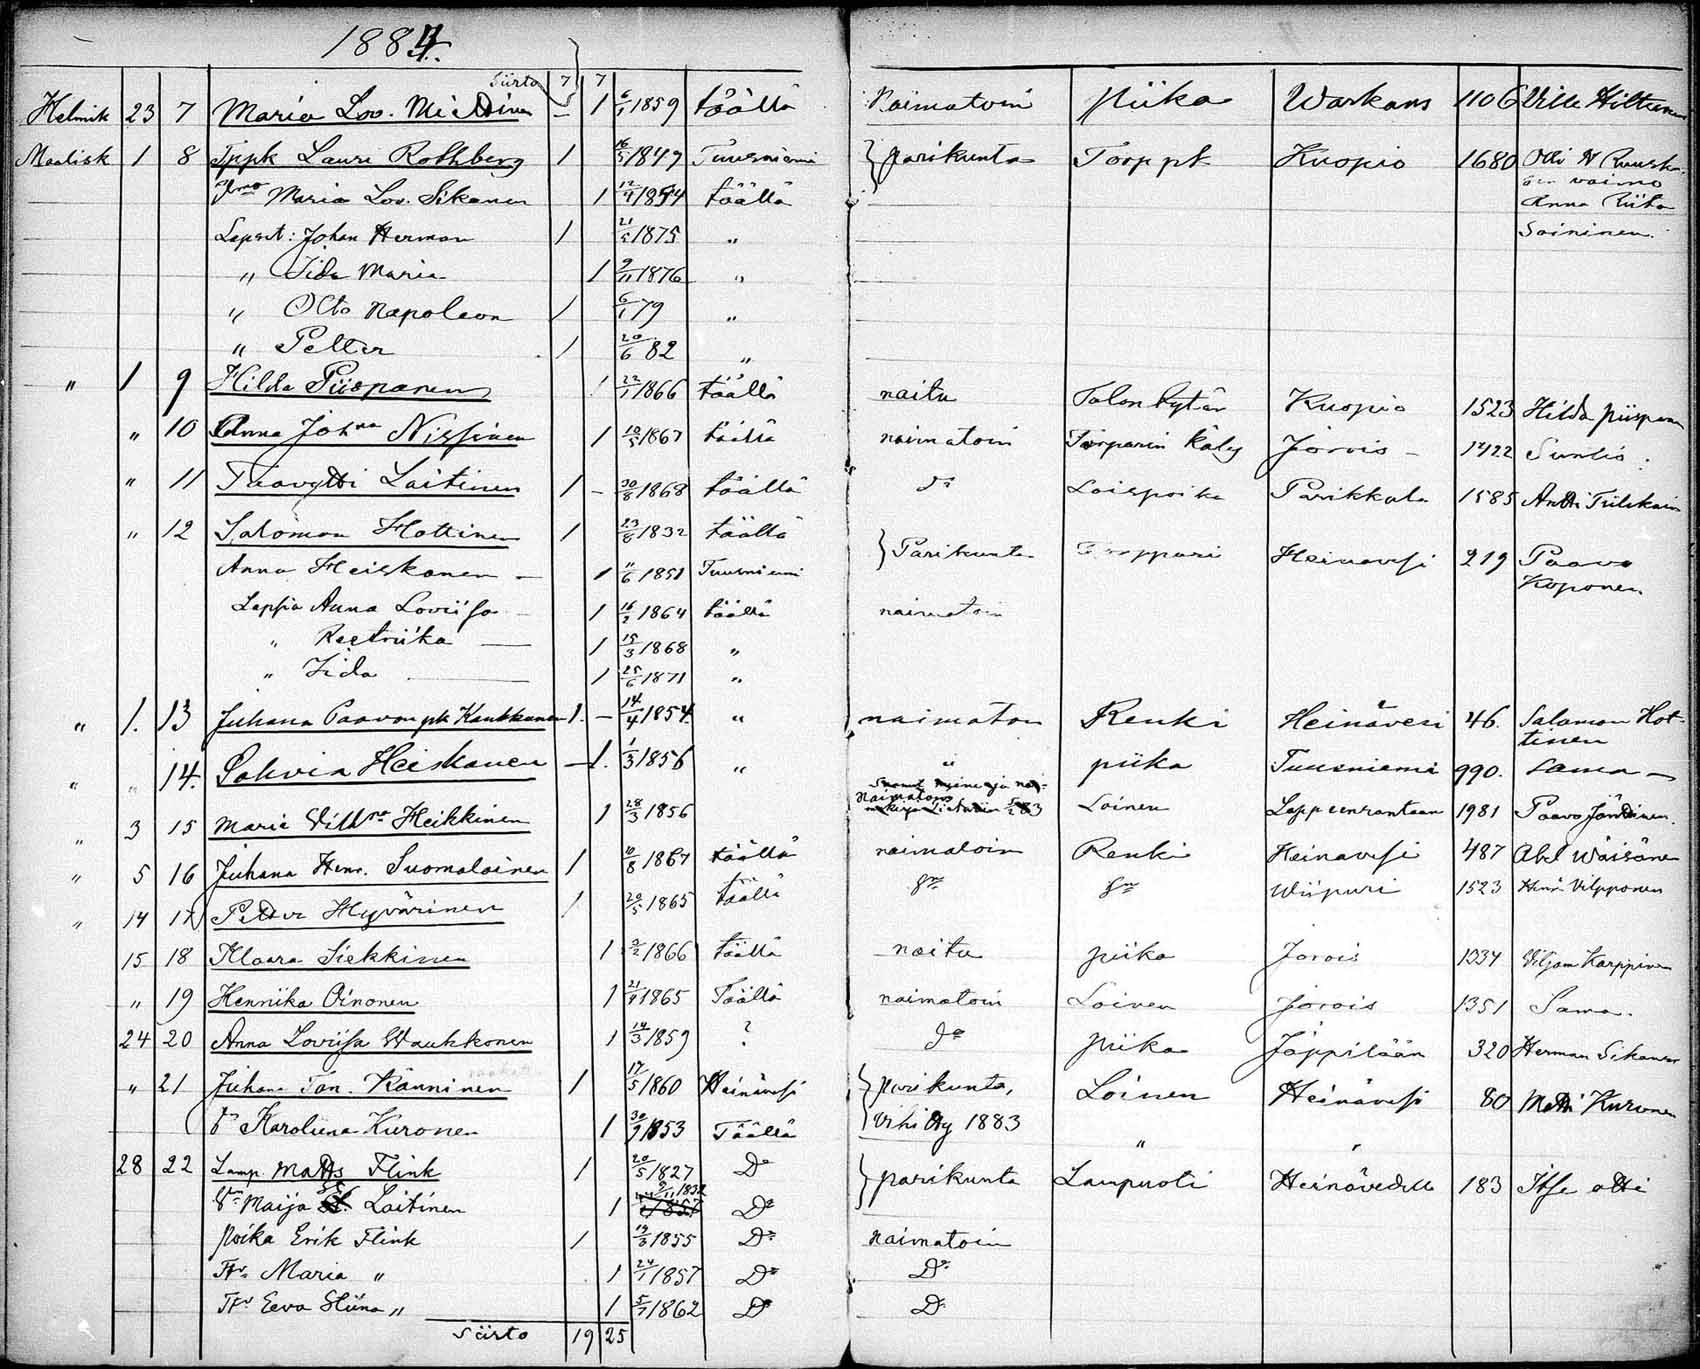 1884.
Siirto 7 7
Helmik 23 7 Maria Lov. Miettinen – 1 6/1 1859 täällä Naimatoin piika Warkaus 1106 Ville Hiltunen
Maalisk 1 8 Tppk Lauri Rothberg 1 16/5 1849 Tuusniemi } parikunta Torppk Kuopio 1680 Otti A Ruuska-
Vmo Maria Lov. Sikanen 1 12/4 1854 täällä vaimo
Anna Riita
Lapset: Johan Herman 1 21/5 1875 " Soininen.
" Iida Maria 1 9/11 1876 "
" Otto Napoleon 1 6/1 79 "
" Petter 1 20/6 82 "
" 1 9 Hilda Piispanen 1 22/1 1866 täällä naitu Talon tytär Kuopio 1523 Hilda piispanen
" 10 Anna Johna Nissinen 1 10/5 1867 täällä naimatoin Torparin käly Jorois – 1422
" 11 Taavetti Laitinen 1 – 30/8 1868 täällä do Loispoika Parikkala 1585 Antti
" 12 Salomon Hottinen 1 23/6 1832 täällä } Parikunta Torppari Heinavesi 219 Paavo
Anna Heiskanen – 1 11/6 1851 Tuusniemi Koponen
Lapsia Anna Loviisa – 1 16/2 1864 täällä naimatoin
" Reetriika — 1 15/3 1868 "
" Iida — 1 25/6 1871 "
" 1. 13 Juhana Paavon pk Kaukkanen 1. – 14/4 1854. " naimaton Renki Heinävesi 46. Salamon Hot-
tinen
" " 14. Sohvia Heiskanen – 1. 1/3 1856 " " piika Tuusniemi 990. Sama –
Naimatoin
" 3 15 Maria Villhra Heikkinen 1 28/3 1856 Loinen Lappeenrantaan 1981 Paavo
" 5 16 Juhana Henr. Suomalainen 1 10/8 1867 täällä naimatoin Renki Heinavesi 487 Abel Wäisänen
" 14 17 Petter Hyvärinen 1 20/5 1865 täällä do do Wiipuri 1523 Vilpponen
15 18 Klaara Siekkinen 1 2/2 1866 täällä naitu piika Jorois 1334 Viljam Karppinen
" 19 Henriika Oinonen 1 21/9 1865 Täällä naimatoin Loinen Jorois 1351 Sama.
24 20 Anna Loviisa Waukkonen 1 14/3 1859 ? do piika Jäppilään 320 Herman Sikanen
" 21 Juhana Tan. Känninen 1 17/5 1860 Heinävesi } parikunta, Loinen Heinävesi 80 Matti Kuronen
V Karoliina Kuronen 1 30/9 1853 Täällä vihitty 1883 " "
28 22 Lamp. Matts Flink 1 20/5 1827 Do } parikunta Lampuoti Heinävedelle 183 Itse otti
Vm Maija Laitinen 1 9/11 1832 Do
Poika Erik Flink 1 19/3 1855 Do naimatoin
Ttr Maria " 1 24/1 1857 Do Do
Ttr Eeva Stiina " 1 5/7 1862 Do D
Siirto 19 25